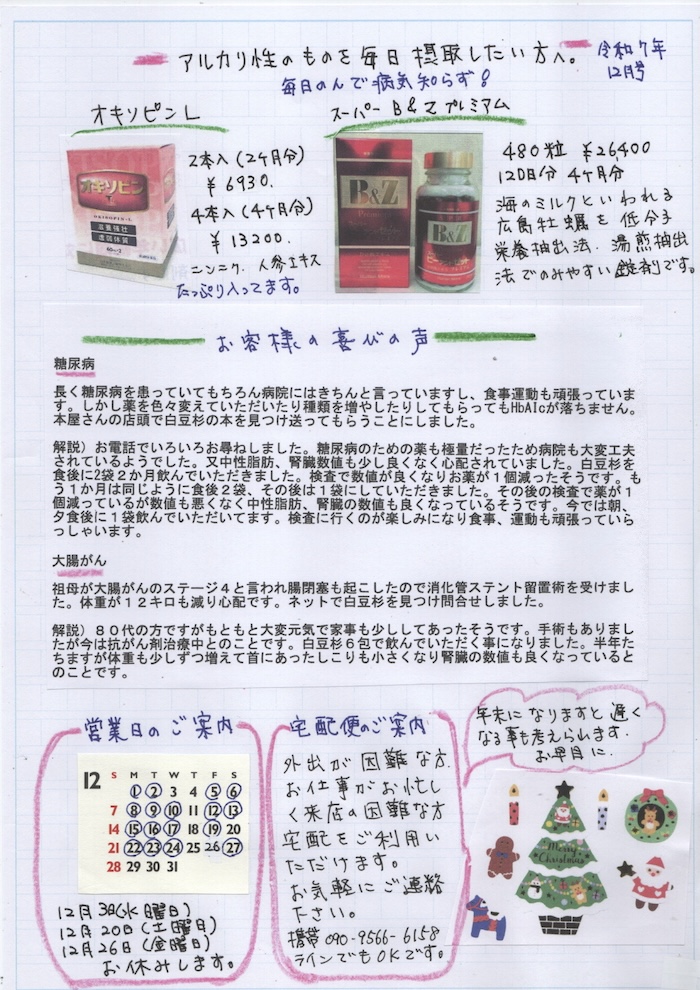 アルカリ性のものを毎日摂取したい方へ。
令和7年
12月号
毎日のんで病気知らず!
オキソピンL
スーパーB&Zプレミアム
オキソピン
OKISOPIN-L
滋養強壮
虚弱体質
2本入(2ヶ月分)
¥6930.
4本入(4ヶ月分)
¥13200.
ニンニク、人参エキス
たっぷり入ってます。
B&Z
B&Z
480粒 ¥26,400
120日分 4ヶ月分
海のミルクといわれる
広島牡蠣を低分子
栄養抽出法、湯煎抽出
法でのみやすい錠剤です。
お客様の喜びの声
糖尿病
長く糖尿病を患っていてもちろん病院にはきちんと言っていますし、食事運動も頑張っていま
す。しかし薬を色々変えていただいたり種類を増やしたりしてもらってもHbAIcが落ちません。
本屋さんの店頭で白豆杉の本を見つけ送ってもらうことにしました。
解説)お電話でいろいろお尋ねしました。糖尿病のための薬も極量だったため病院も大変工夫
されているようでした。又中性脂肪、腎臓数値も少し良くなく心配されていました。白豆杉を
食後に2袋2か月飲んでいただきました。検査で数値が良くなりお薬が1個減ったそうです。も
う1か月は同じように食後2袋、その後は1袋にしていただきました。その後の検査で薬が1
個減っているが数値も悪くなく中性脂肪、腎臓の数値も良くなっているそうです。今では朝、
夕食後に1袋飲んでいただいてます。検査に行くのが楽しみになり食事、運動も頑張っていら
っしゃいます。
大腸がん
祖母が大腸がんのステージ4と言われ腸閉塞も起こしたので消化管ステント留置術を受けまし
た。体重が12キロも減り心配です。ネットで白豆杉を見つけ問合せしました。
解説)80代の方ですがもともと大変元気で家事も少ししてあったそうです。手術もありまし
たが今は抗がん剤治療中とのことです。白豆杉6包で飲んでいただく事になりました。半年た
ちますが体重も少しずつ増えて首にあったしこりも小さくなり腎臓の数値も良くなっていると
のことです。
営業日のご案内
12 S M T W T F S
1 2 3 4 5 6
7 8 9 10 11 12 13
14 15 16 17 18 19 20
21 22 23 24 25 26 27
28 29 30 31
12月3日(水曜日)
12月20日(土曜日)
12月26日(金曜日)
お休みします。
宅配便のご案内
外出が困難な方、
お仕事がお忙し
く来店の困難な方
宅配をご利用い
ただけます。
お気軽にご連絡
下さい。
携帯 090-9566-6158
ラインでもOKです。
年末になりますと遅く
なる事も考えられます.
お早目に.
Merry
Christmas